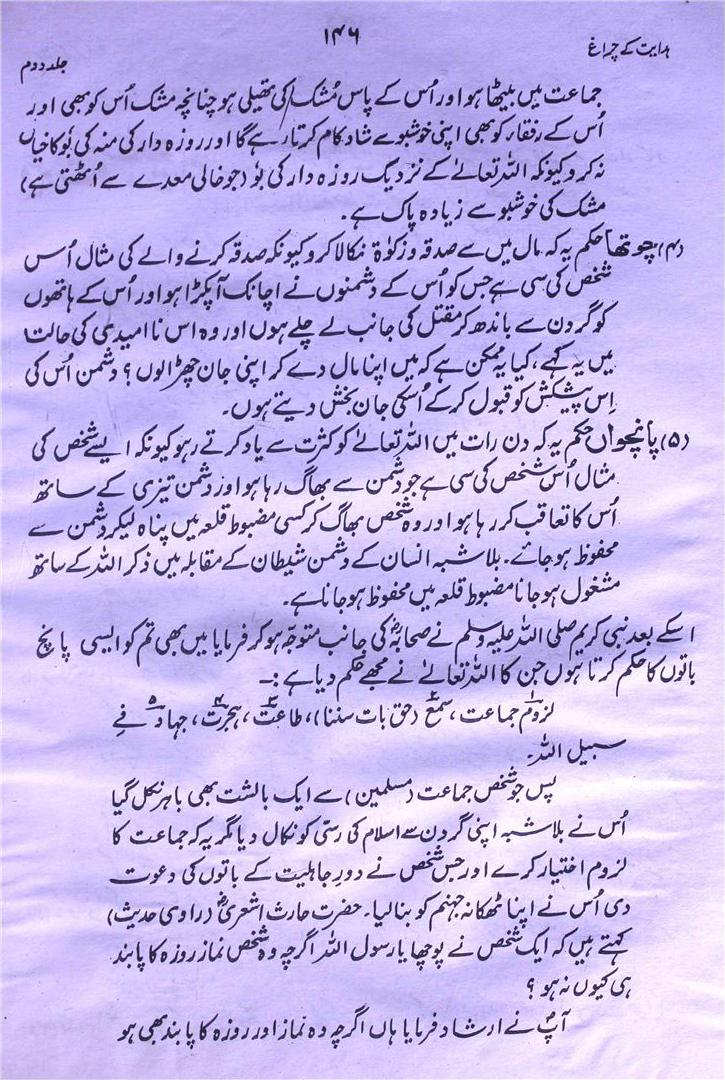 ہدایت کے چراغ
۱۴۶
جلد دوم
جماعت میں بیٹھا ہو اور اُس کے پاس مُشک کی تھیلی ہو چنانچہ مشک اُس کو بھی اور
اُس کے رفقاء کو بھی اپنی خوشبو سے شاد کام کرتا رہے گا اور روزہ دار کی منہ کی بُو کا خیال
نہ کرو کیونکہ اللہ تعالےٰ کے نزدیک روزہ دار کی بُو (جو خالی معدے سے اُٹھتی ہے)
مشک کی خوشبو سے زیادہ پاک ہے۔
(۴) چوتھا حکم یہ کہ مال میں سے صدقہ و زکوٰۃ نکالا کرو کیونکہ صدقہ کرنے والے کی مثال اُس
شخص کی سی ہے جس کو اُس کے دشمنوں نے اچانک آپکڑا ہو اور اُس کے ہاتھوں
کو گردن سے باندھ کر مقتل کی جانب لے چلے ہوں اور وہ اس نا امیدی کی حالت
میں یہ کہے، کیا یہ ممکن ہے کہ میں اپنا مال دے کر اپنی جان چھڑالوں؟ دشمن اُس کی
اِس پیشکش کو قبول کرکے اُسکی جان بخش دیتے ہوں۔
(۵) پانچواں حکم یہ کہ دن رات میں اللہ تعالےٰ کو کثرت سے یاد کرتے رہو کیونکہ ایسے شخص کی
مثال اُس شخص کی سی ہے جو دشمن سے بھاگ رہا ہو اور دشمن تیزی کے ساتھ
اُس کا تعاقب کر رہا ہو اور وہ شخص بھاگ کر کسی مضبوط قلعہ میں پناہ لیکر دشمن سے
محفوظ ہو جائے۔ بلاشبہ انسان کے دشمن شیطان کے مقابلہ میں ذکر اللہ کے ساتھ
مشغول ہو جانا مضبوط قلعہ میں محفوظ ہو جانا ہے۔
اسکے بعد نبی کریم صلی اللہ علیہ وسلم نے صحابہؓ کی جانب متوجّہ ہو کر فرمایا میں بھی تم کو ایسی پانچ
باتوں کا حکم کرتا ہوں جن کا اللہ تعالےٰ نے مجھے حکم دیا ہے :۔
لزوم۱ جماعت، سمع۲ (حق بات سننا)، طاعت۳، ہجرت۴، جہاد۵ فے
سبیل اللہ۔
پس جو شخص جماعت (مسلمین) سے ایک بالشت بھی باہر نکل گیا
اُس نے بلاشبہ اپنی گردن سے اسلام کی رسّی کو نکال دیا مگر یہ کہ جماعت کا
لزوم اختیار کرے اور جس شخص نے دورِ جاہلیت کے باتوں کی دعوت
دی اُس نے اپنا ٹھکانہ جہنم کو بنالیا۔ حضرت حارث اشعریؓ (راوی حدیث)
کہتے ہیں کہ ایک شخص نے پوچھا یا رسول اللہ اگرچہ وہ شخص نماز روزہ کا پابند
ہی کیوں نہ ہو؟
آپؐ نے ارشاد فرمایا ہاں اگرچہ وہ نماز اور روزہ کا پابند بھی ہو